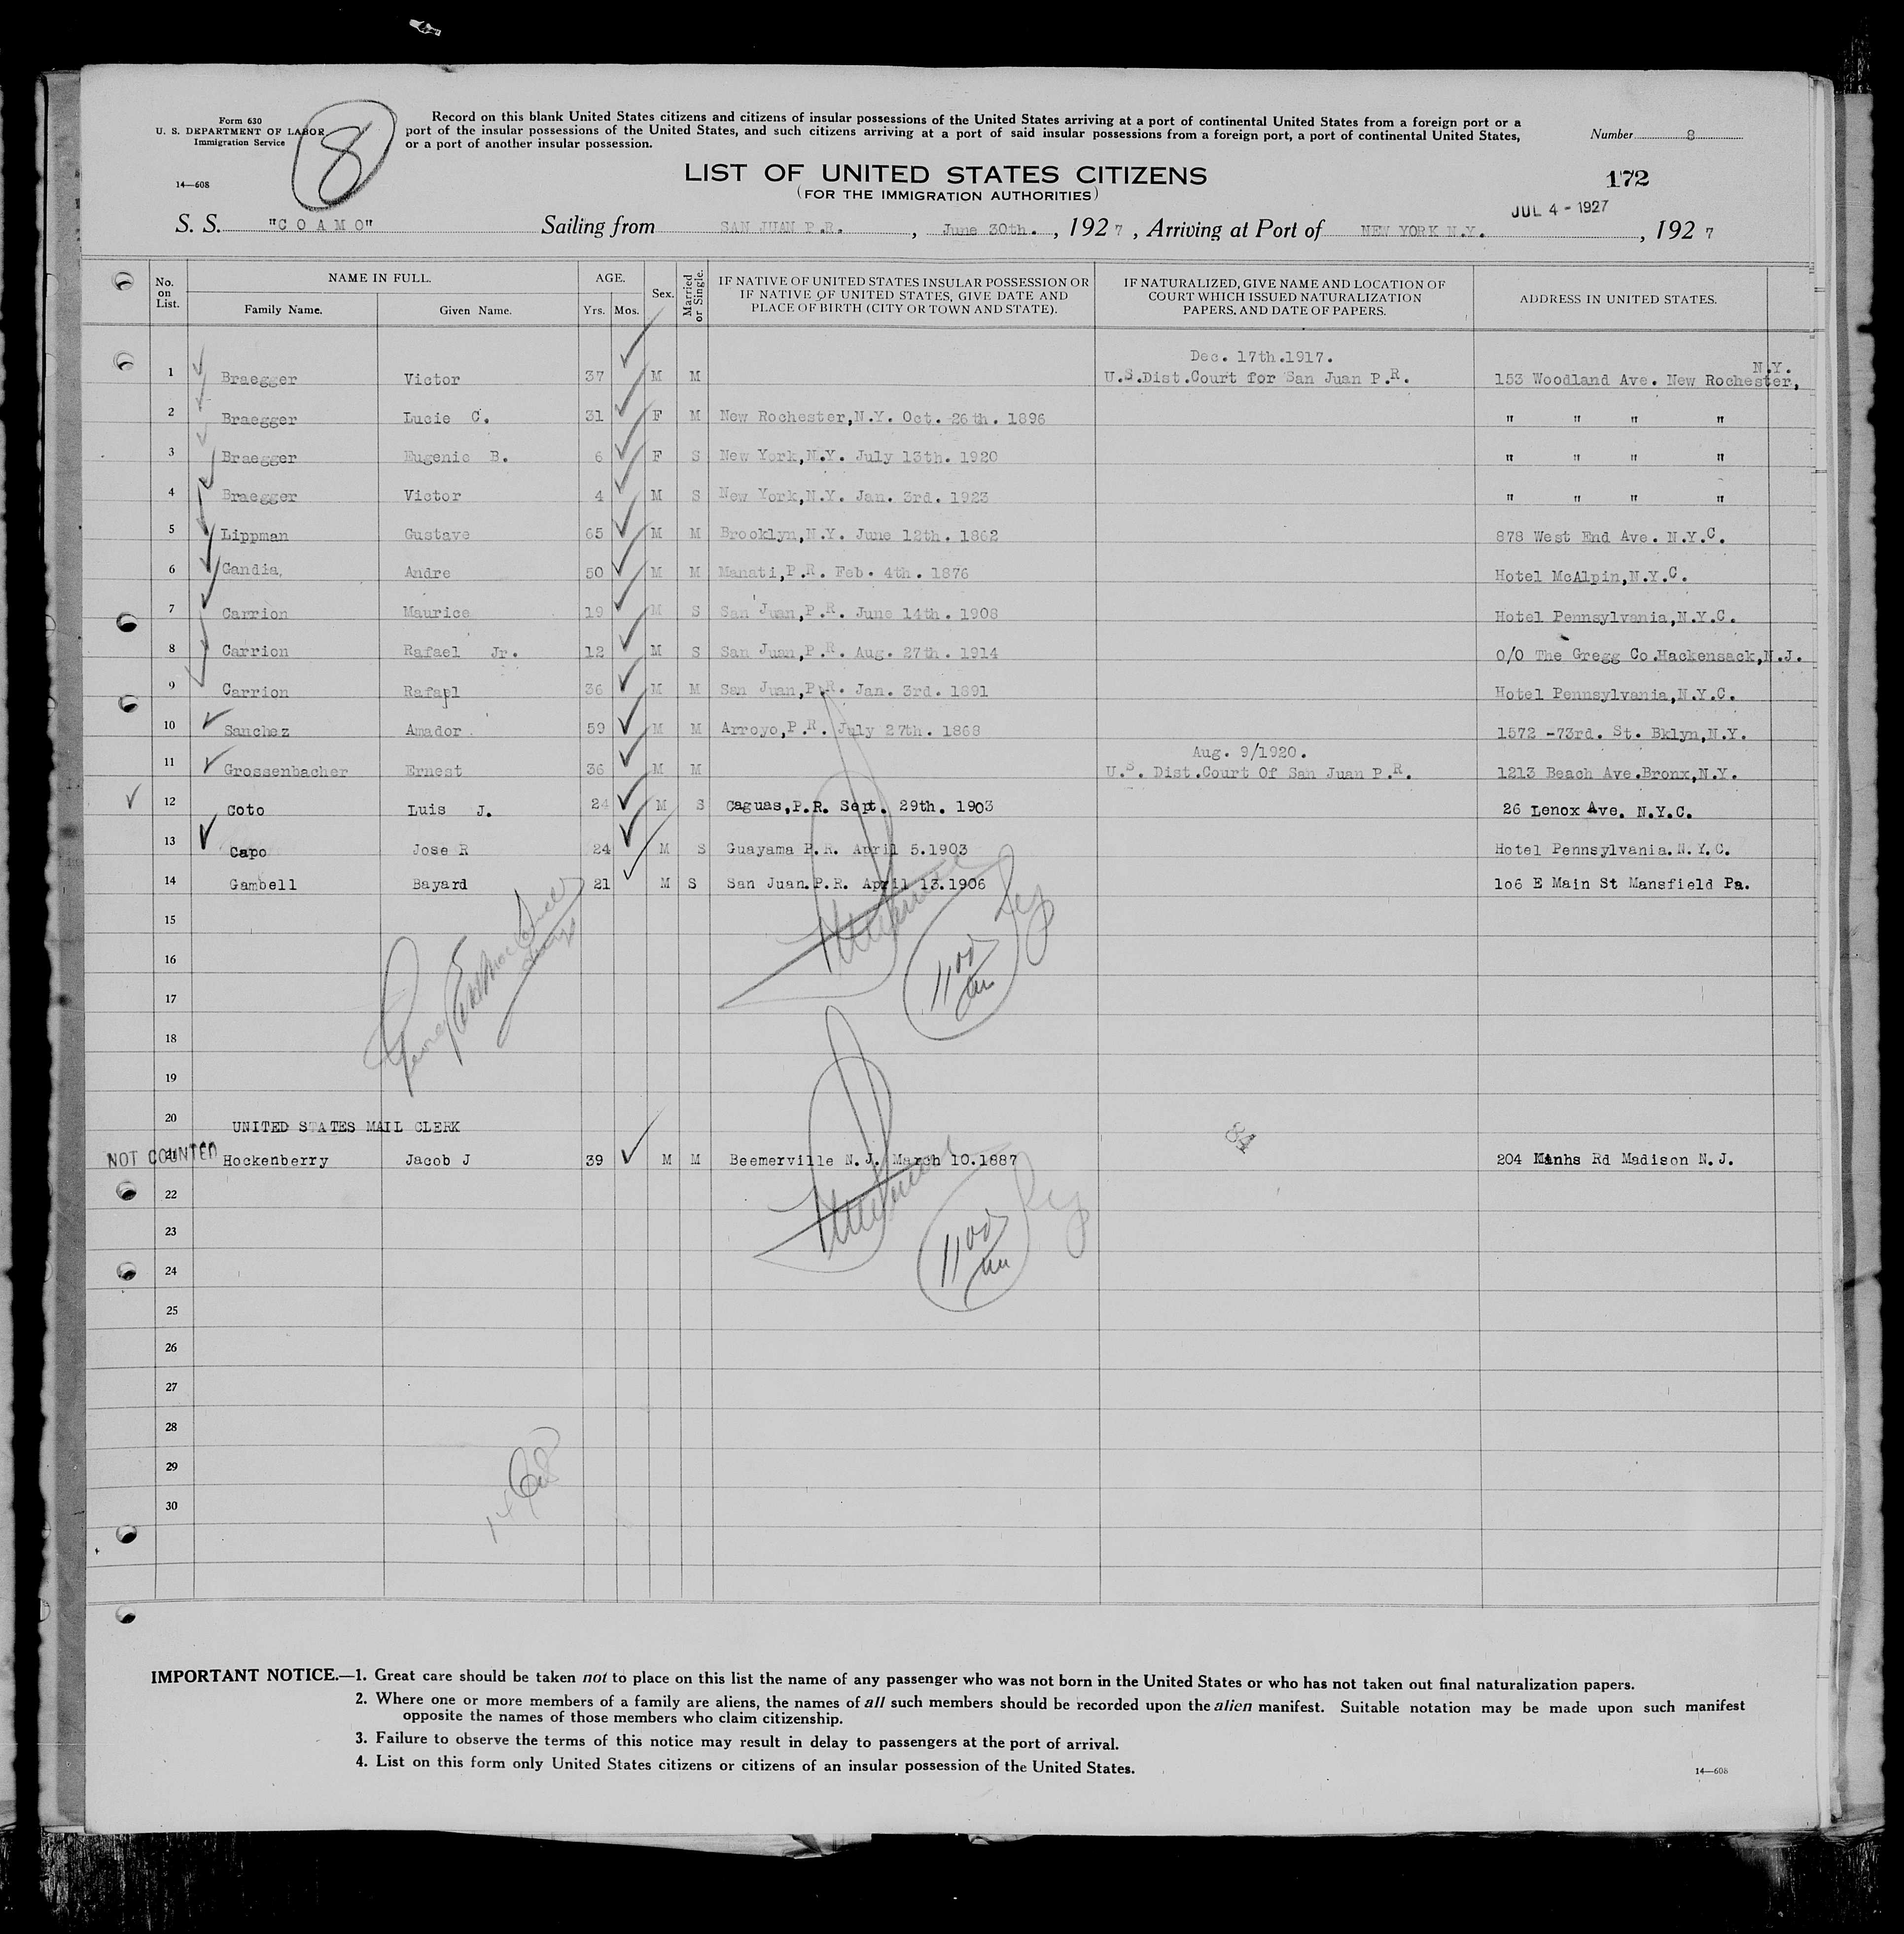 Form 630
U. S. DEPARTMENT OF LABOR
Immigration Service
14—608
8
Record on this blank United States citizens and citizens of insular possessions of the United States arriving at a port of continental United States from a foreign port or a
port of the insular possessions of the United States, and such citizens arriving at a port of said insular possessions from a foreign port, a port of continental United States,
or a port of another insular possession.
Number 8
LIST OF UNITED STATES CITIZENS
(FOR THE IMMIGRATION AUTHORITIES)
172
JUL 4 - 1927
S. S. "C O A M O" Sailing from SAN JUAN P.R. , June 30th. , 1927 , Arriving at Port of NEW YORK N.Y. , 1927
No. on List. NAME IN FULL. AGE. Sex. Married or Single. IF NATIVE OF UNITED STATES INSULAR POSSESSION OR IF NATIVE OF UNITED STATES, GIVE DATE AND PLACE OF BIRTH (CITY OR TOWN AND STATE). IF NATURALIZED, GIVE NAME AND LOCATION OF COURT WHICH ISSUED NATURALIZATION PAPERS, AND DATE OF PAPERS. ADDRESS IN UNITED STATES.
Family Name. Given Name. Yrs. Mos.
Dec. 17th.1917. N.Y.
1 Braegger Victor 37 M M U.S.Dist.Court for San Juan P.R. 153 Woodland Ave. New Rochester,
2 Braegger Lucie C. 31 F M New Rochester,N.Y. Oct. 26th. 1896 " " " "
3 Braegger Eugenie B. 6 F S New York,N.Y. July 13th. 1920 " " " "
4 Braegger Victor 4 M S New York,N.Y. Jan. 3rd. 1923 " " " "
5 Lippman Gustave 65 M M Brooklyn,N.Y. June 12th. 1862 878 West End Ave. N.Y.C.
6 Gandia, Andre 50 M M Manati,P.R. Feb. 4th. 1876 Hotel McAlpin,N.Y.C.
7 Carrion Maurice 19 M S San Juan,P.R. June 14th. 1908 Hotel Pennsylvania,N.Y.C.
8 Carrion Rafael Jr. 12 M S San Juan,P.R. Aug. 27th. 1914 O/O The Gregg Co.Hackensack,N.J.
9 Carrion Rafael 36 M M San Juan,P.R. Jan. 3rd. 1891 Hotel Pennsylvania,N.Y.C.
10 Sanchez Amador. 59 M M Arroyo,P.R. July 27th. 1868 1572 -73rd. St. Bklyn,N.Y.
Aug. 9/1920.
11 Grossenbacher Ernest 36 M M U.S. Dist.Court Of San Juan P.R. 1213 Beach Ave.Bronx,N.Y.
12 Coto Luis J. 24 M S Caguas,P.R. Sept. 29th. 1903 26 Lenox Ave. N.Y.C.
13 Capo Jose R 24 M S Guayama P.R. April 5.1903 Hotel Pennsylvania.N.Y.C.
14 Gambell Bayard 21 M S San Juan.P.R. April 13.1906 1o6 E Main St Mansfield Pa.
15
16
1100
17
18
19
20 UNITED STATES MAIL CLERK
84
NOT COUNTED 21 Hockenberry Jacob J 39 M M Beemerville N.J. March 10.1887 204 Kinhs Rd Madison N.J.
22
23
1100
24
25
26
27
28
29
30
14
IMPORTANT NOTICE.—1. Great care should be taken not to place on this list the name of any passenger who was not born in the United States or who has not taken out final naturalization papers.
2. Where one or more members of a family are aliens, the names of all such members should be recorded upon the alien manifest. Suitable notation may be made upon such manifest
opposite the names of those members who claim citizenship.
3. Failure to observe the terms of this notice may result in delay to passengers at the port of arrival.
4. List on this form only United States citizens or citizens of an insular possession of the United States.
14—608